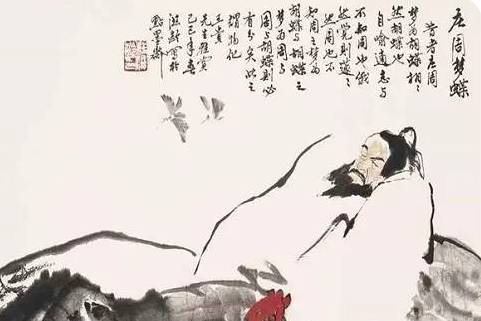 庄周梦蝶
昔者庄周
梦为胡蝶栩栩
然胡蝶也
自喻适志与
不知周也俄
然觉则蘧蘧
然周也不
知周之梦为
胡蝶与胡蝶之
梦为周与
周与胡蝶则必
有分矣此之
谓物化
先生雅赏
己巳年春
写於